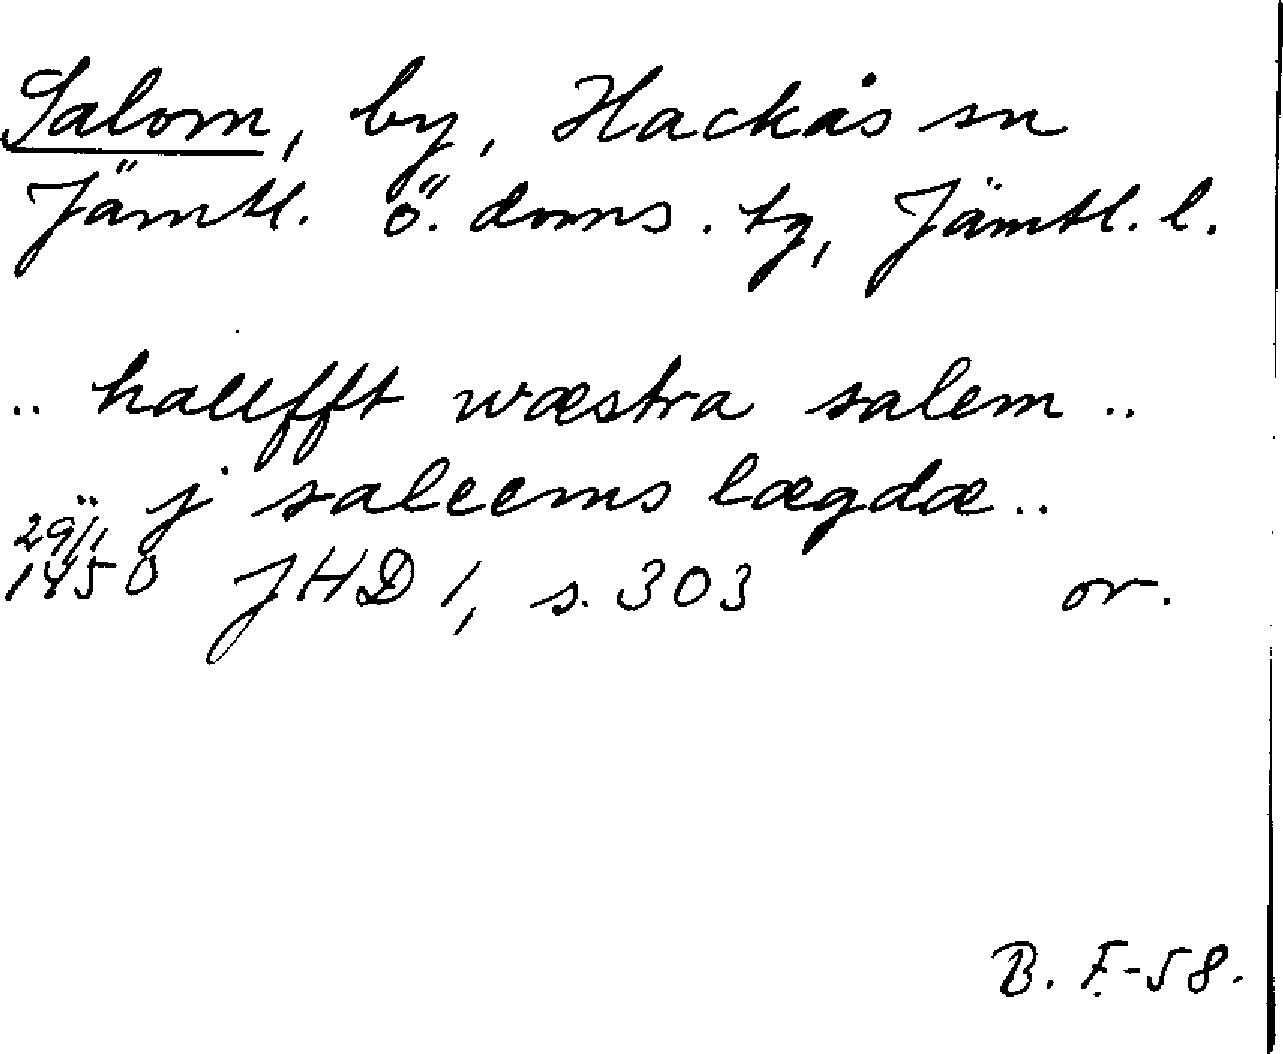 Salom, by, Hackås sn
Jämtl. ö. doms. tg, Jämtl. l.
.. hallfft wæstra salem ..
.. j saleems lægdæ ..
29/1
1450 JHD 1, s. 303 or.
B. F.-58.